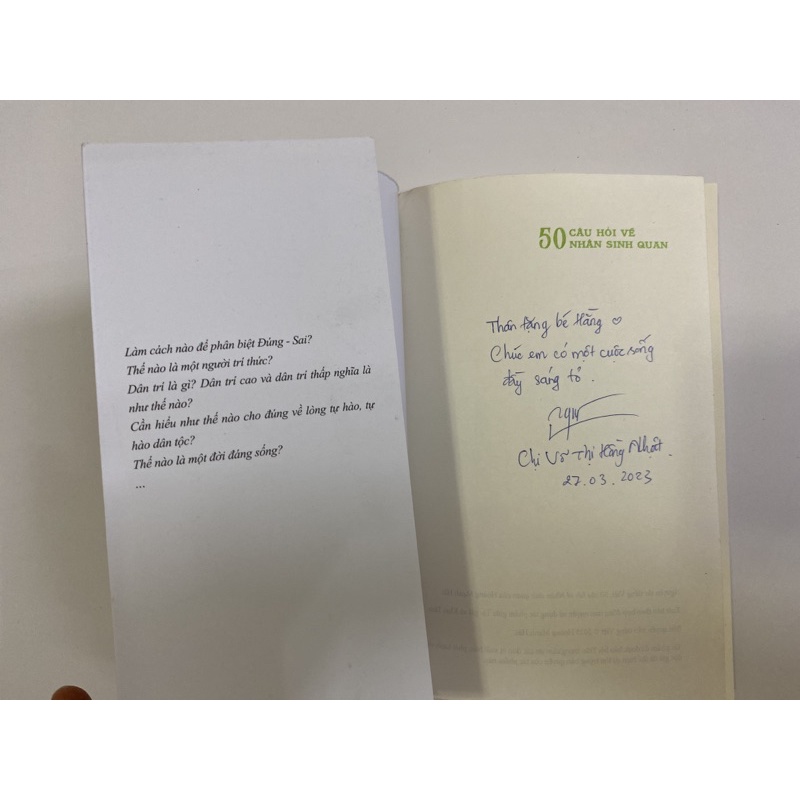 Làm cách nào để phân biệt Đúng - Sai?
Thế nào là một người trí thức?
Dân trí là gì? Dân trí cao và dân trí thấp nghĩa là
như thế nào?
Cần hiểu như thế nào cho đúng về lòng tự hào, tự
hào dân tộc?
Thế nào là một đời đáng sống?
...
50 CÂU HỎI VỀ
NHÂN SINH QUAN
Thân tặng bé Hằng ♡
Chúc em có một cuộc sống
đầy sáng tỏ.
Chị Võ Thị Hồng Nhật.
27.03.2023